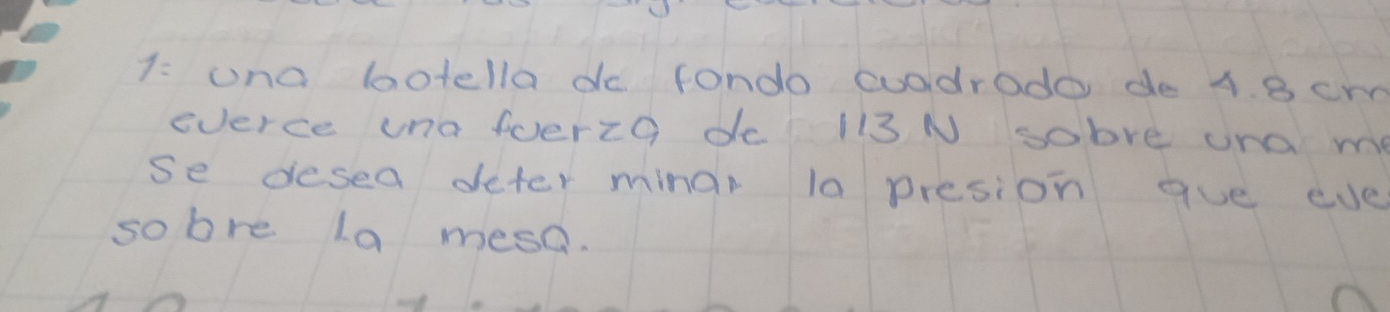 1: una botella de fondo cuadrado de 4.8 cm
everce una fuerza de 113 N sobre una me
Se desea determinar la presion que eve
sobre la mesa.